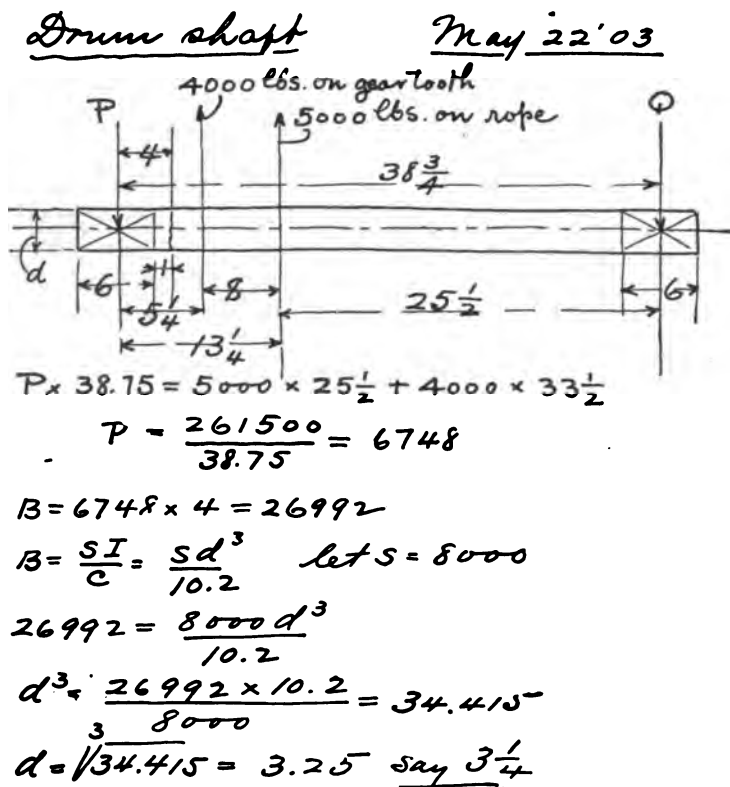 Drum shaft May 22'03
4000 lbs. on gear tooth
P 5000 lbs. on rope Q
4
38 3/4
d 6 1 8 25 1/2 6
5 1/4
13 1/4
P × 38.75 = 5000 × 25 1/2 + 4000 × 33 1/2
P = 261500/38.75 = 6748
B = 6748 × 4 = 26992
B = SI/C = Sd³/10.2 let S = 8000
26992 = 8000d³/10.2
d³ = 26992 × 10.2/8000 = 34.415
d = ∛34.415 = 3.25 say 3 1/4